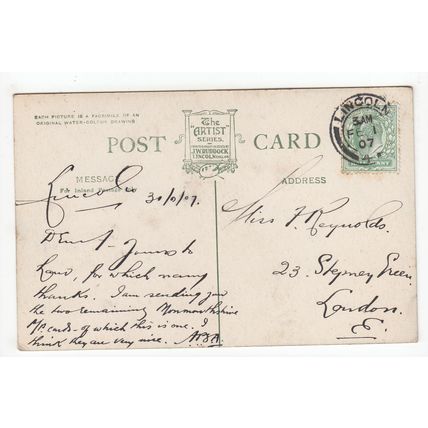 EACH PICTURE IS A FACSIMILE OF AN
ORIGINAL WATER-COLOUR DRAWING
The
"ARTIST"
SERIES.
J.W.RUDDOCK
LINCOLN
POST CARD
LINCOLN
5 AM
FE 1
07
MESSAGE
For Inland Postage
ADDRESS
Lincoln
30/1/07.
Yours to
hand, for which many
thanks. I am sending you
the two remaining Monmouthshire
P.P. cards - of which this is one. I
think they are very nice.
Miss F. Reynolds.
23. Stepney Green.
London.
E.